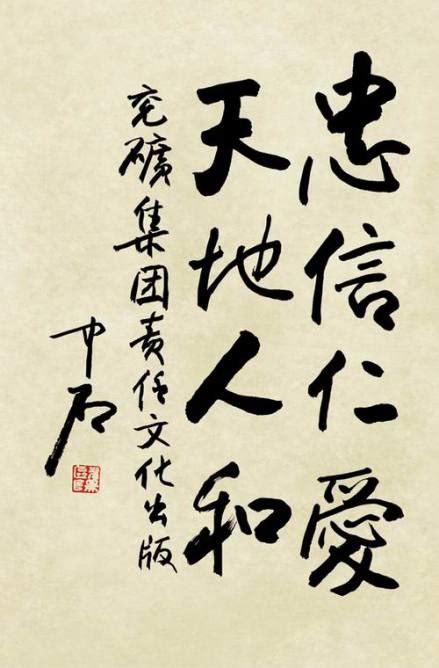 忠信仁愛
天地人和
兖礦集团责任文化出版
中石